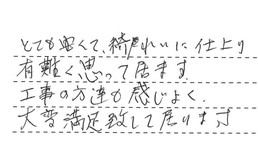 とても安くて、綺麗に仕上り
有難く思って居ます
工事の方達も感じよく、
大変満足致して居ります